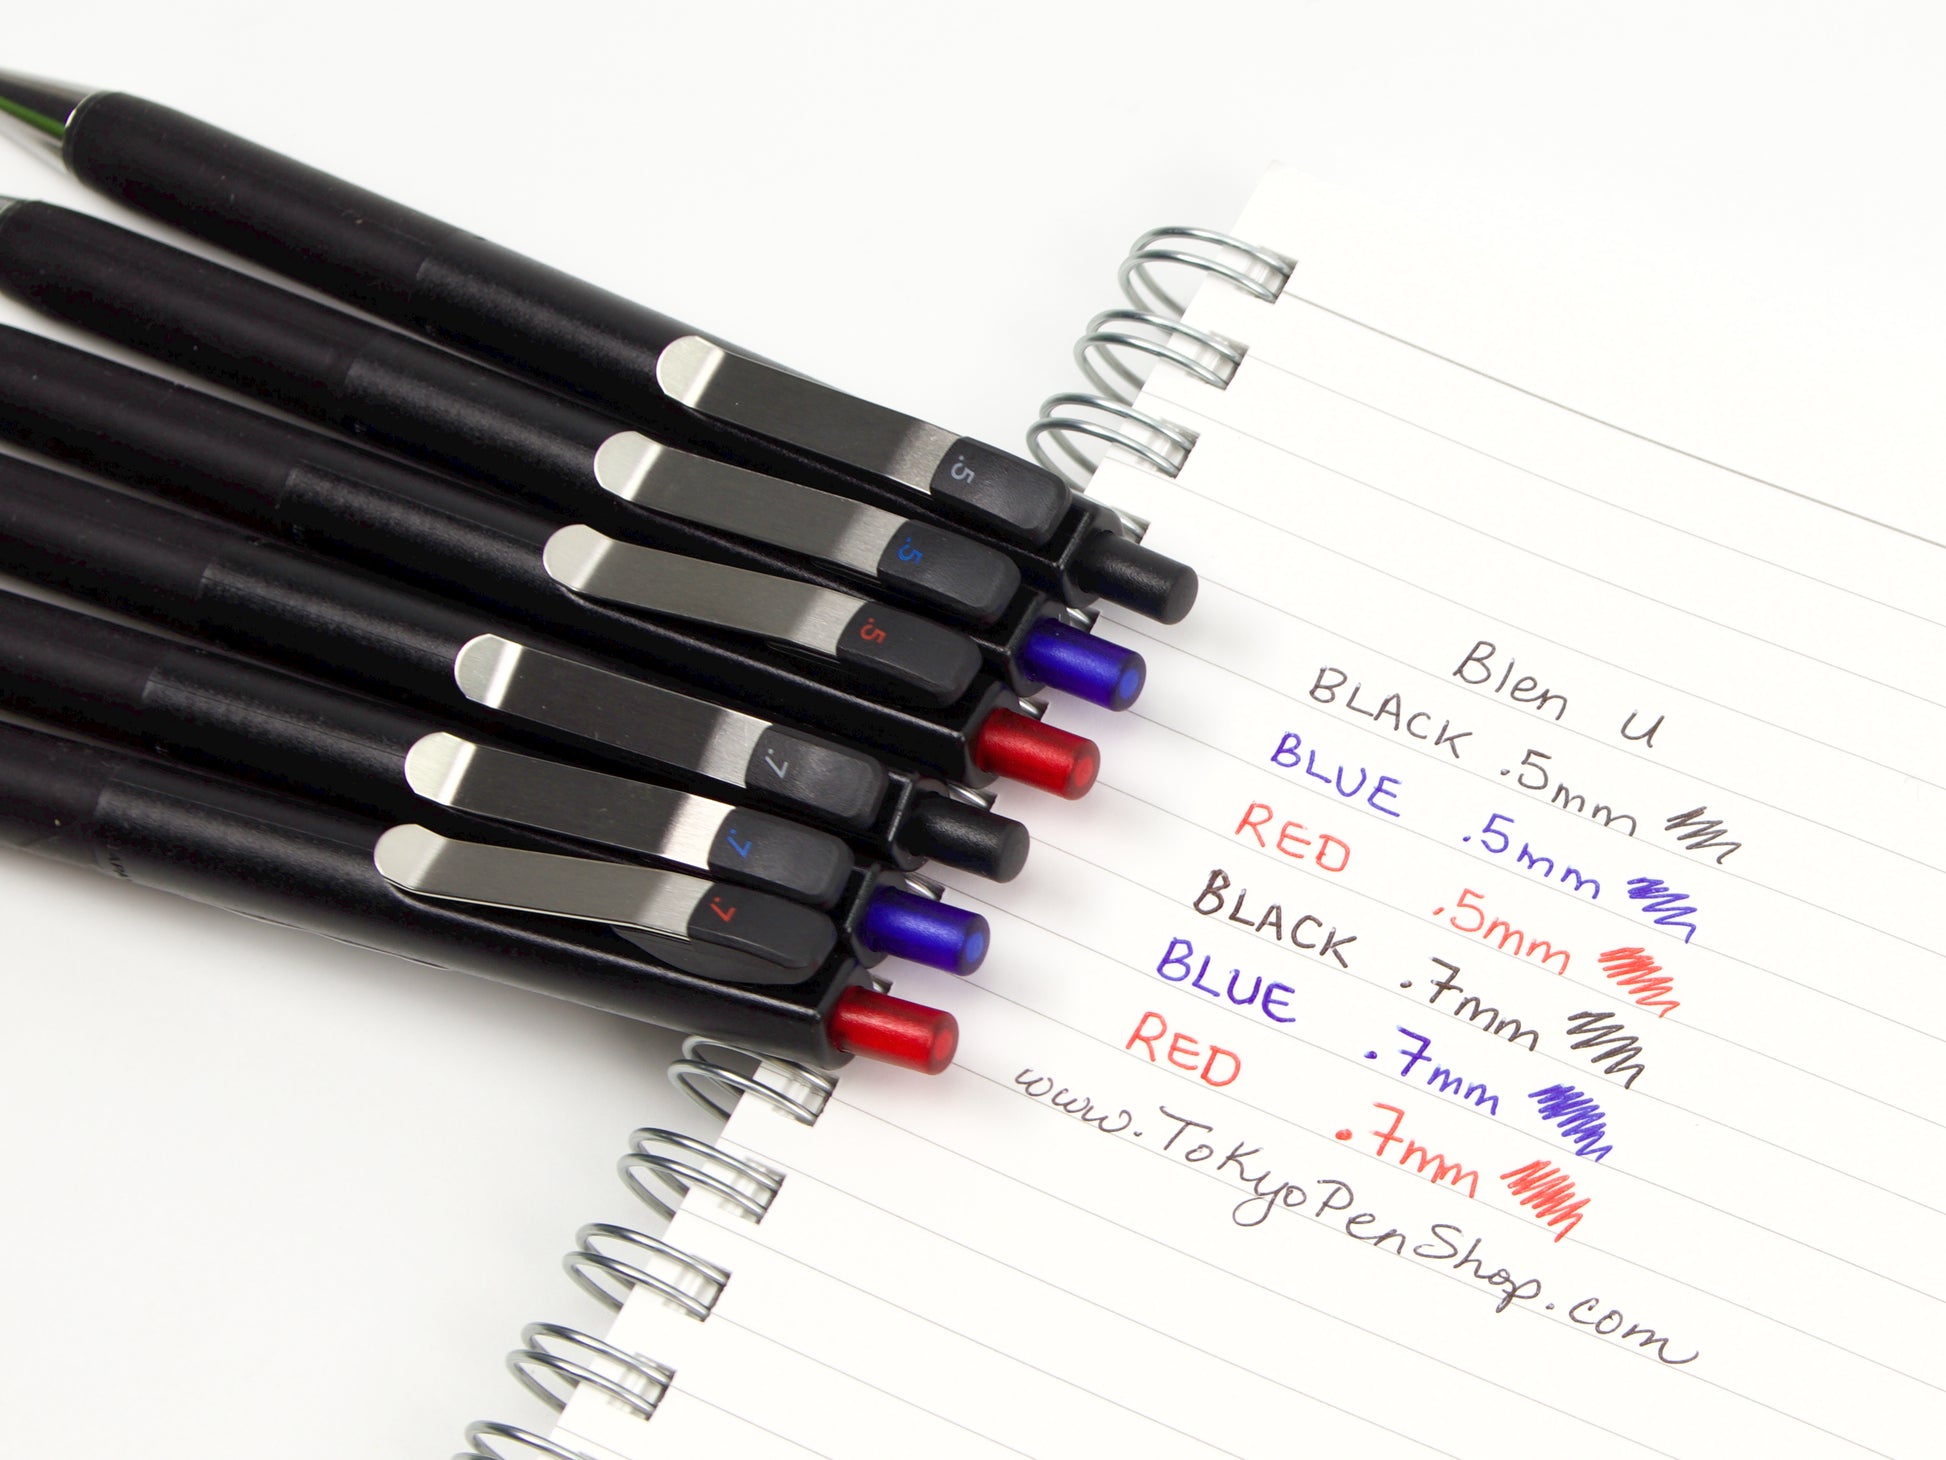 .5
.5
.5
.7
.7
.7
Blen U
BLACK .5mm
BLUE .5mm
RED .5mm
BLACK .7mm
BLUE .7mm
RED .7mm
www.TokyoPenShop.com